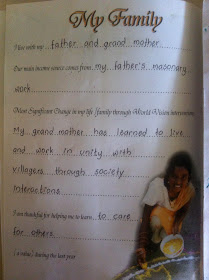 My Family
I live with my father and grand mother
Our main income source comes from my father's masonary
work
Most Significant Change in my life /family through World Vision intervention
My grand mother has learned to live
and work in unity with
villagers through society
interactions
I am thankful for helping me to learn to care
for others
(a value) during the last year